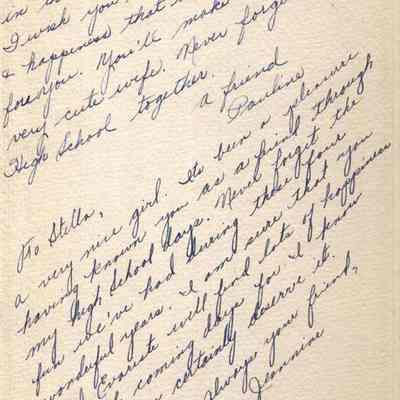 in
I wish you
& happiness that
for you. You'll make
very cute wife. Never forge
High School together.
a friend
Pauline
To Stella,
a very nice girl. Its been a pleasure
having known you as a friend through
my high school days. Never forget the
fun we've had during these four
wonderful years. I am sure that you
Evariste will find lots of happiness
coming days for I know
certainly deserve it.
Always your friend,
Jeannine